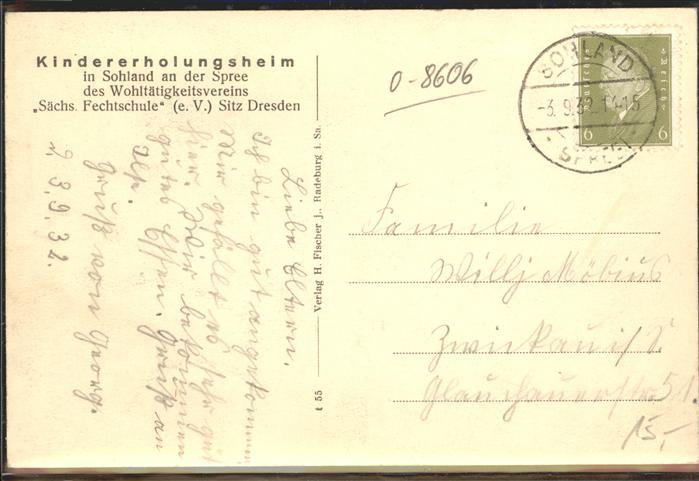 Kindererholungsheim
in Sohland an der Spree
des Wohltätigkeitsvereins
„Sächs. Fechtschule“ (e. V.) Sitz Dresden
0-8606
SOHLAND
-3.9.32.
(SPREE)
Deutsches Reich
6 6
Liebe Eltern.
Ich bin gut angekommen
Mir gefällt es sehr gut
hier. Wir bekommen
gutes Essen. Gruß an
Gruß von Georg.
3.9.32.
Verlag H. Fischer j., Radeburg i. Sa.
t 55
Familie
Willy Möbius
Zwickau i/S.
Glauchauerstr. 51.
15,-